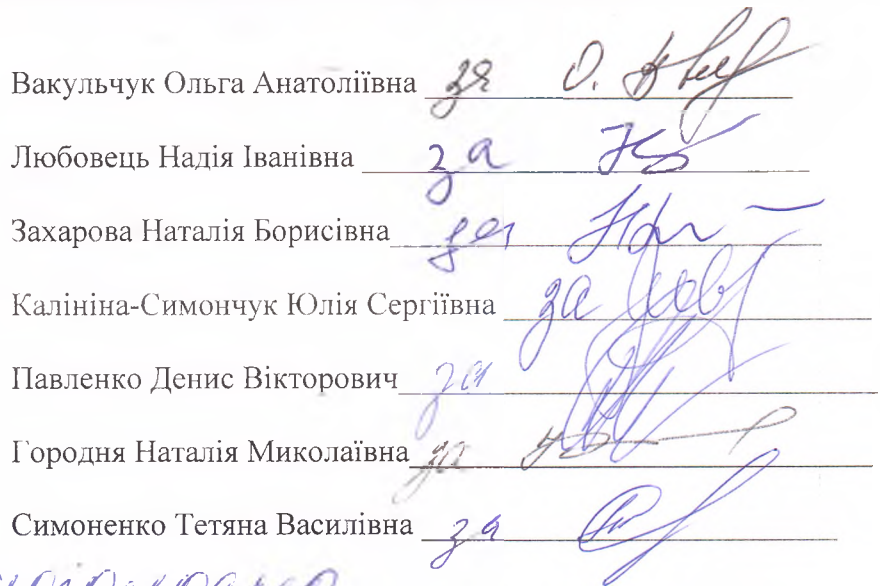 Вакульчук Ольга Анатоліївна за
Любовець Надія Іванівна за
Захарова Наталія Борисівна за
Калініна-Симончук Юлія Сергіївна за
Павленко Денис Вікторович за
Городня Наталія Миколаївна за
Симоненко Тетяна Василівна за